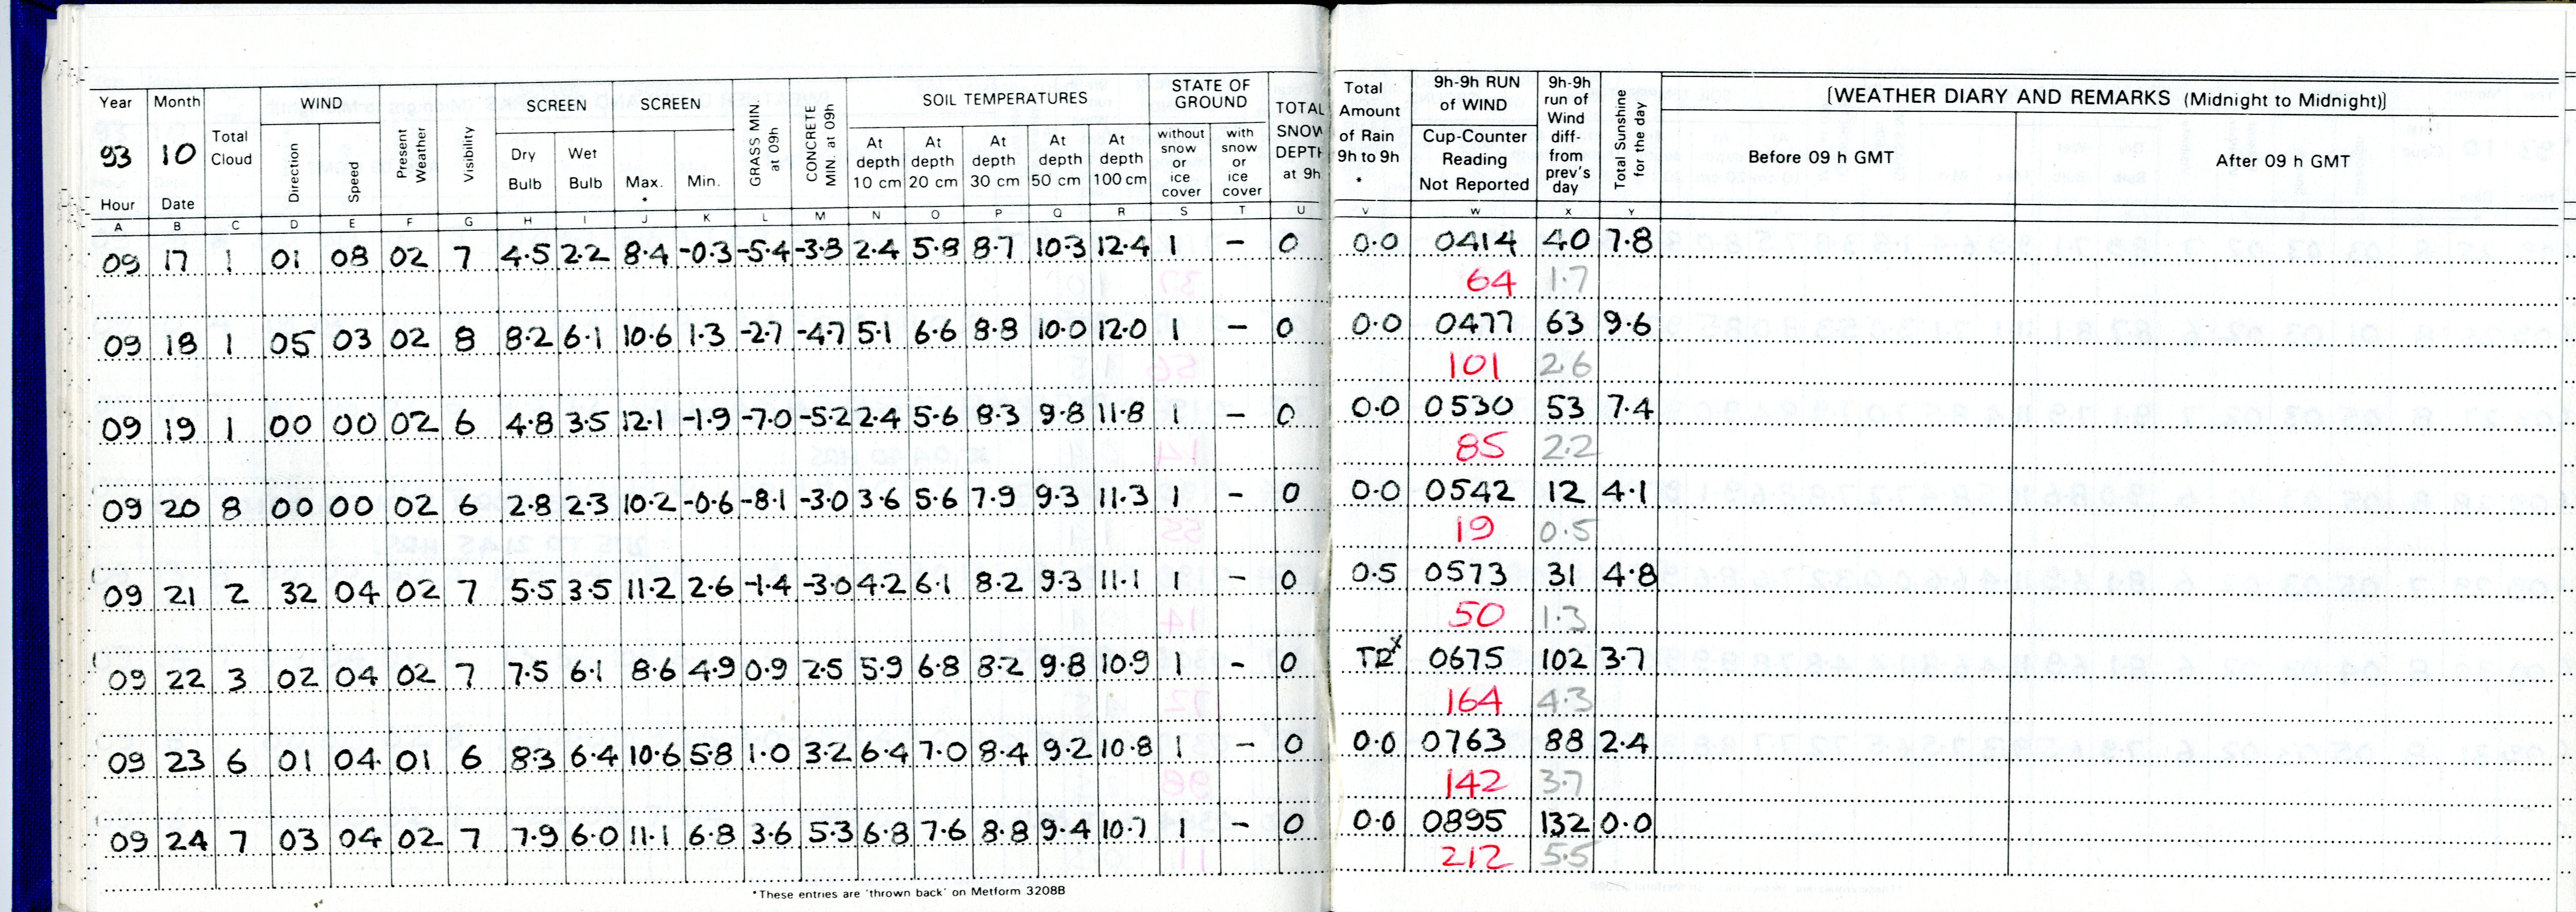 Year Month Total Cloud WIND Present Weather Visibility SCREEN SCREEN GRASS MIN. at 09h CONCRETE MIN. at 09h SOIL TEMPERATURES STATE OF GROUND TOTAL SNOW DEPTH at 9h Total Amount of Rain 9h to 9h * 9h-9h RUN of WIND 9h-9h run of Wind diff- from prev's day Total Sunshine for the day [WEATHER DIARY AND REMARKS (Midnight to Midnight)]
93 10 Direction Speed Dry Bulb Wet Bulb Max. * Min. At depth 10 cm At depth 20 cm At depth 30 cm At depth 50 cm At depth 100 cm without snow or ice cover with snow or ice cover Cup-Counter Reading Not Reported Before 09 h GMT After 09 h GMT
Hour Date
A B C D E F G H I J K L M N O P Q R S T U V W X Y
09 17 1 01 08 02 7 4.5 2.2 8.4 -0.3 -5.4 -3.8 2.4 5.8 8.7 10.3 12.4 1 – 0 0.0 0414 40 7.8
64 1.7
09 18 1 05 03 02 8 8.2 6.1 10.6 1.3 -2.7 -4.7 5.1 6.6 8.8 10.0 12.0 1 – 0 0.0 0477 63 9.6
101 2.6
09 19 1 00 00 02 6 4.8 3.5 12.1 -1.9 -7.0 -5.2 2.4 5.6 8.3 9.8 11.8 1 – 0 0.0 0530 53 7.4
85 2.2
09 20 8 00 00 02 6 2.8 2.3 10.2 -0.6 -8.1 -3.0 3.6 5.6 7.9 9.3 11.3 1 – 0 0.0 0542 12 4.1
19 0.5
09 21 2 32 04 02 7 5.5 3.5 11.2 2.6 -1.4 -3.0 4.2 6.1 8.2 9.3 11.1 1 – 0 0.5 0573 31 4.8
50 1.3
09 22 3 02 04 02 7 7.5 6.1 8.6 4.9 0.9 2.5 5.9 6.8 8.2 9.8 10.9 1 – 0 TR x 0675 102 3.7
164 4.3
09 23 6 01 04 01 6 8.3 6.4 10.6 5.8 1.0 3.2 6.4 7.0 8.4 9.2 10.8 1 – 0 0.0 0763 88 2.4
142 3.7
09 24 7 03 04 02 7 7.9 6.0 11.1 6.8 3.6 5.3 6.8 7.6 8.8 9.4 10.7 1 – 0 0.0 0895 132 0.0
212 5.5
*These entries are 'thrown back' on Metform 3208B